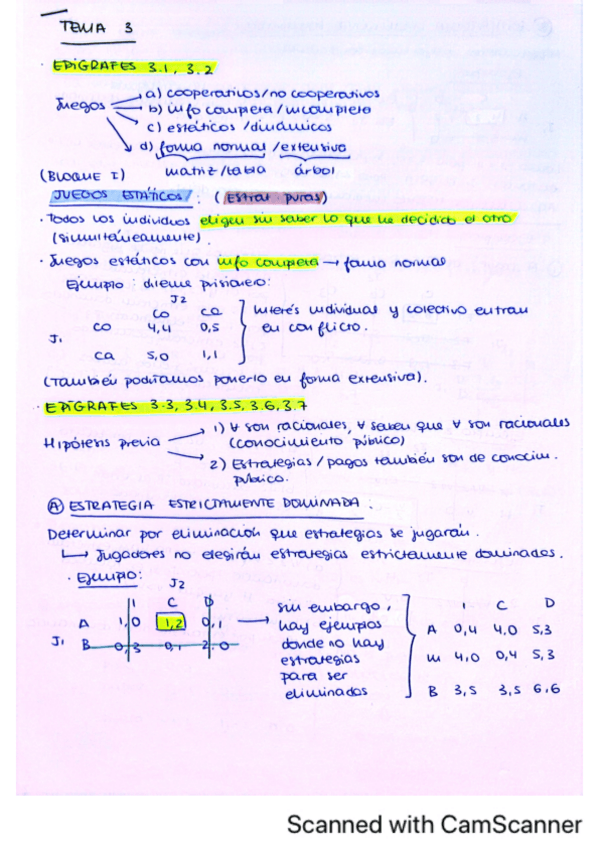 TEMA 3
· EPÍGRAFES 3.1, 3.2
Juegos
a) cooperativos/no cooperativos
b) info completa/incompleta
c) estáticos/dinámicos
d) forma normal/extensiva
matriz/tabla árbol
(BLOQUE I)
JUEGOS ESTÁTICOS: (Estrat puras)
· Todos los individuos eligen sin saber lo que ha decidido el otro
(simultáneamente).
· Juegos estáticos con info completa → forma normal
Ejemplo: dilema prisionero:
J2
CO CA
CO 4,4 0,5
J1
CA 5,0 1,1
Interés individual y colectivo entran
en conflicto.
(También podríamos ponerlo en forma extensiva).
· EPÍGRAFES 3.3, 3.4, 3.5, 3.6, 3.7
Hipótesis previa
1) ∀ son racionales, ∀ saben que ∀ son racionales
(conocimiento público)
2) Estrategias/pagos también son de conocim.
público.
Ⓐ ESTRATEGIA ESTRICTAMENTE DOMINADA:
Determinar por eliminación que estrategias se jugarán.
↳ Jugadores no elegirán estrategias estrictamente dominadas.
· Ejemplo:
J2
I C D
A 1,0 1,2 0,1
J1 B 0,3 0,1 2,0
→ sin embargo,
hay ejemplos
donde no hay
estrategias
para ser
eliminadas
I C D
A 0,4 4,0 5,3
M 4,0 0,4 5,3
B 3,5 3,5 6,6
Scanned with CamScanner